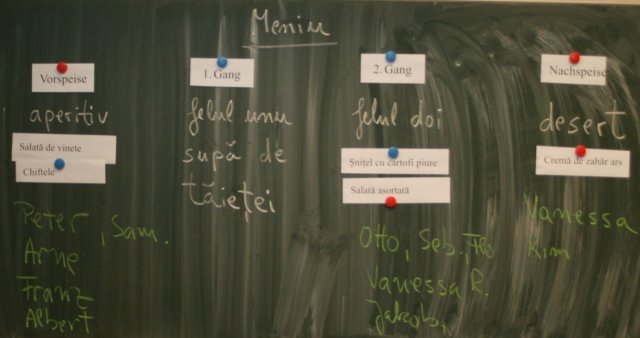 Meniu
Vorspeise
aperitiv
Salată de vinete
Chiftele
Peter, Sam.
Arne
Franz
Albert
1. Gang
felul unu
supă de
tăieței
2. Gang
felul doi
Șnițel cu cartofi piure
Salată asortată
Otto, Seb., Flo
Vanessa R.
Jakob,
Nachspeise
desert
Cremă de zahăr ars
Vanessa
Kim